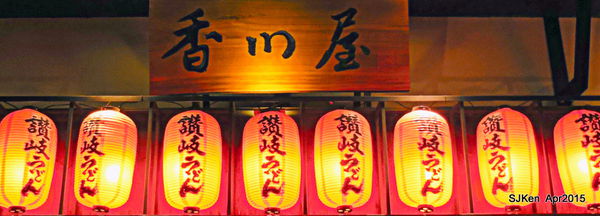 香川屋
讃岐うどん
讃岐うどん
讃岐うどん
讃岐うどん
讃岐うどん
讃岐うどん
讃岐うどん
讃岐うどん
SJKen Apr2015